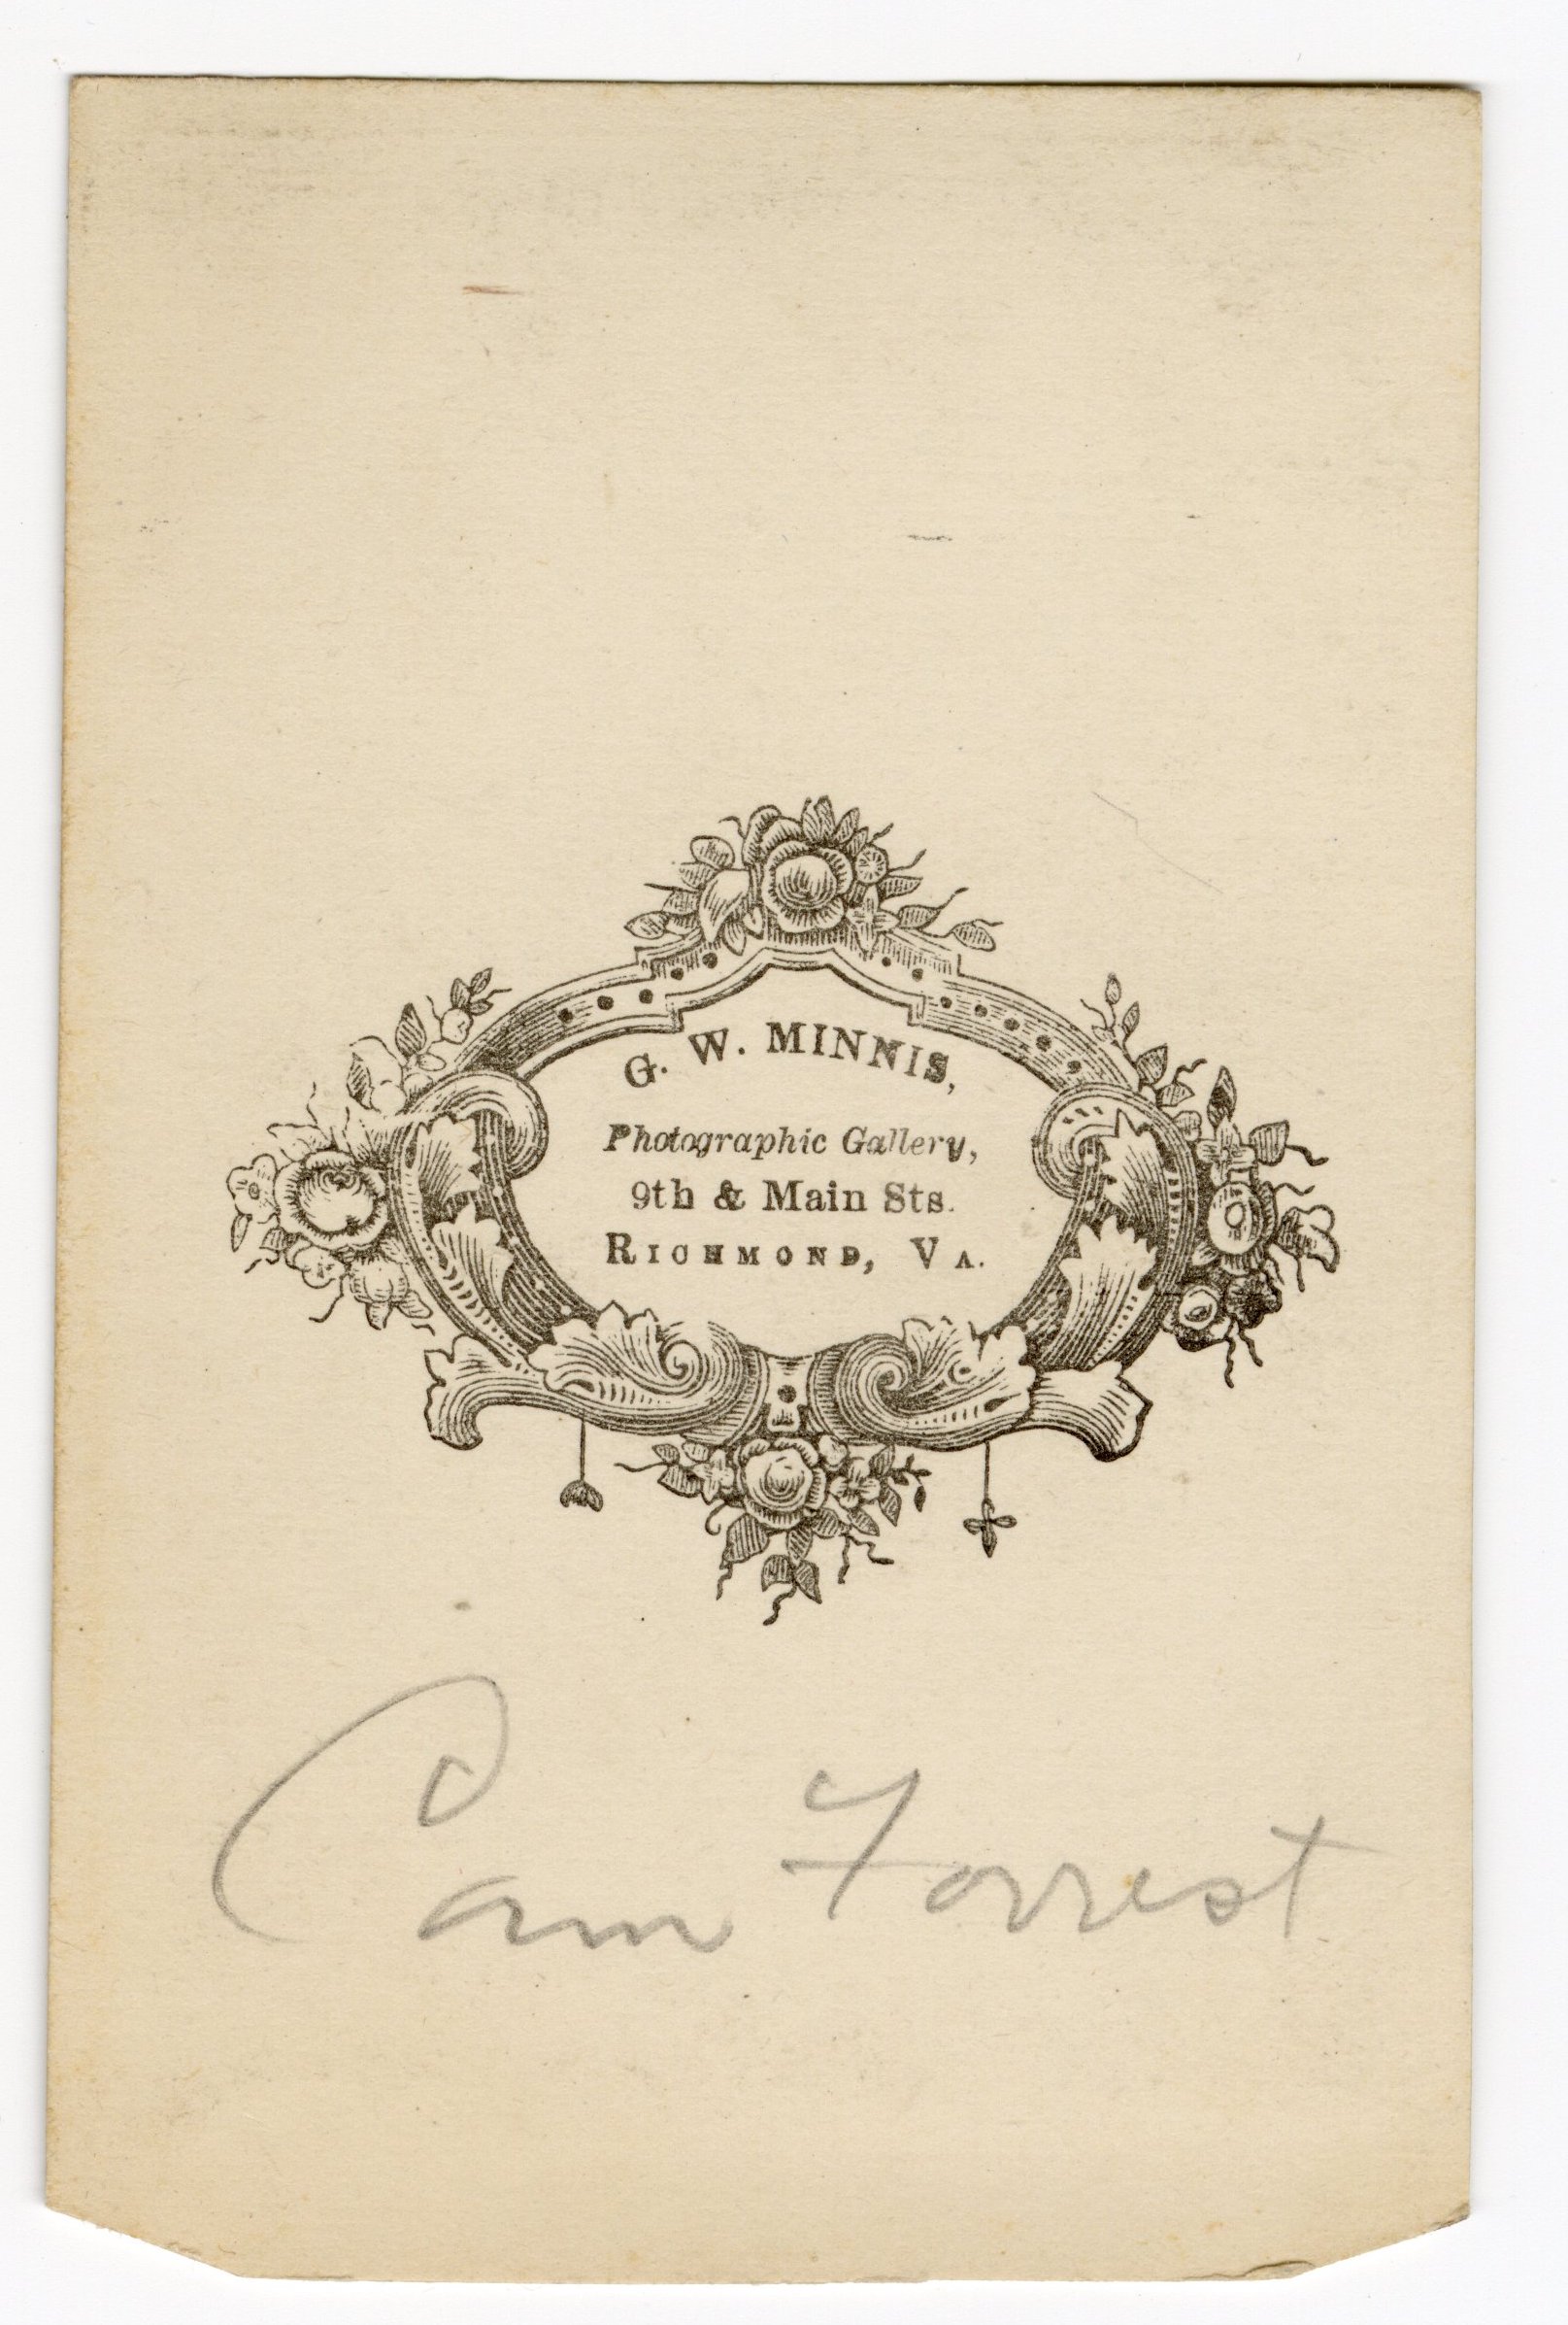 G. W. MINNIS,
Photographic Gallery,
9th & Main Sts.
RICHMOND, VA.
Cam Forrest